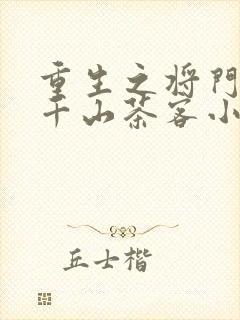 重生之将门
千山茶客小
丘士楷